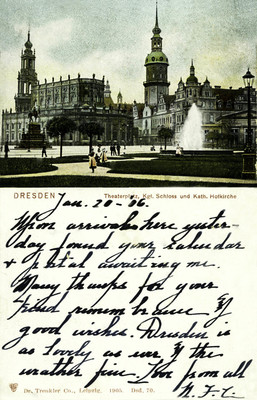 DRESDEN
Theaterplatz, Kgl. Schloss und Kath. Hofkirche
Jan. 20-06.
Upon arrival here yester-
day found your calendar
+ awaiting me.
Many thanks for your
kind remembrance &
good wishes. Dresden is
as lovely as ever & the
weather fine. Love from all
Dr. Trenkler Co., Leipzig. 1905. Dsd. 70.